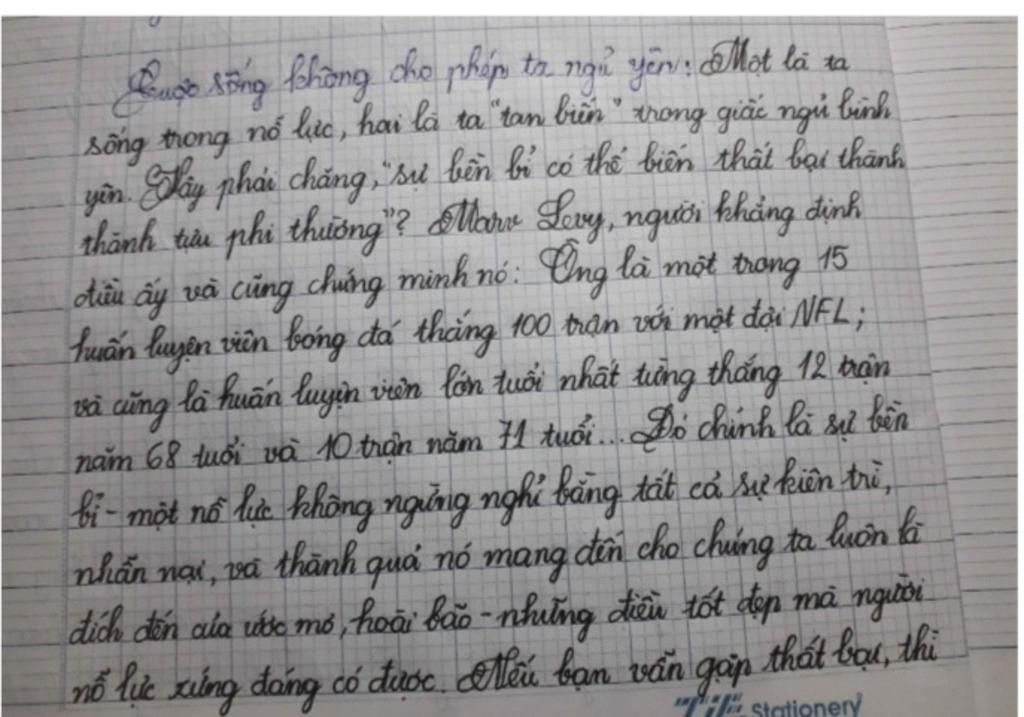 Cuộc sống không cho phép ta ngủ yên: Một là ta
sống trong nỗ lực, hai là ta "tan biến" trong giấc ngủ bình
yên. Vậy phải chăng, "sự bền bỉ có thể biến thất bại thành
thành tựu phi thường"? Marv Levy, người khẳng định
điều ấy và cũng chứng minh nó: Ông là một trong 15
huấn luyện viên bóng đá thắng 100 trận với một đội NFL;
và cũng là huấn luyện viên lớn tuổi nhất từng thắng 12 trận
năm 68 tuổi và 10 trận năm 71 tuổi... Đó chính là sự bền
bỉ - một nỗ lực không ngừng nghỉ bằng tất cả sự kiên trì,
nhẫn nại, và thành quả nó mang đến cho chúng ta luôn là
đích đến của ước mơ, hoài bão - những điều tốt đẹp mà người
nỗ lực xứng đáng có được. Nếu bạn vẫn gặp thất bại, thì
Stationery